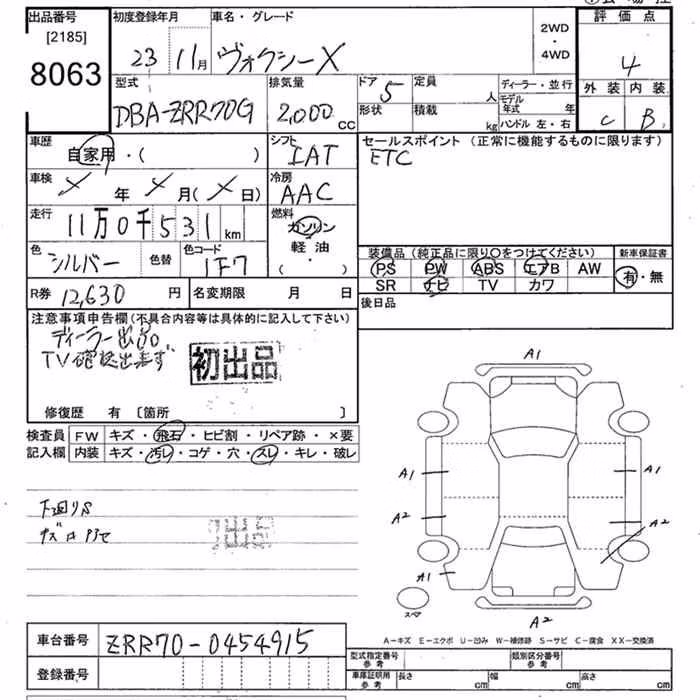 出品番号
[2185]
8063
初度登録年月
23 11月
車名・グレード
ヴォクシーX
2WD
・
4WD
評価点
4
外装 内装
C B
型式
DBA-ZRR70G
排気量
2,000 CC
ドア 5
形状
定員 人
積載 kg
ディーラー・並行
モデル年式 年
ハンドル 左・右
車歴
自家用・( )
シフト
IAT
セールスポイント(正常に機能するものに限ります)
ETC
車検
X 年 X 月(X 日)
冷房
AAC
走行
11万0千531km
燃料
ガソリン
軽油
( )
色
シルバー
色替
色コード
1F7
装備品(純正品に限り○をつけてください)
PS PW ABS エアB AW
SR ナビ TV カワ
新車保証書
有・無
R券 12,630 円
名変期限 月 日
後日品
注意事項申告欄(不具合内容等は具体的に記入して下さい)
ディーラー出品
TV確認出来ず
初出品
修復歴 有 〔箇所 〕
検査員
記入欄
FW キズ・飛石・ヒビ割・リペア跡・×要
内装 キズ・汚レ・コゲ・穴・スレ・キレ・破レ
下廻りS
初出品
A1
A1
A1
A2
A2
A1
A2
スペア
A-キズ E-エクボ U-凹み W-補修跡 S-サビ C-腐食 XX-交換済
車台番号
ZRR70-0454915
登録番号
型式指定番号
参考
類別区分番号
参考
車庫証明用
参考
長さ cm
幅 cm
高さ cm